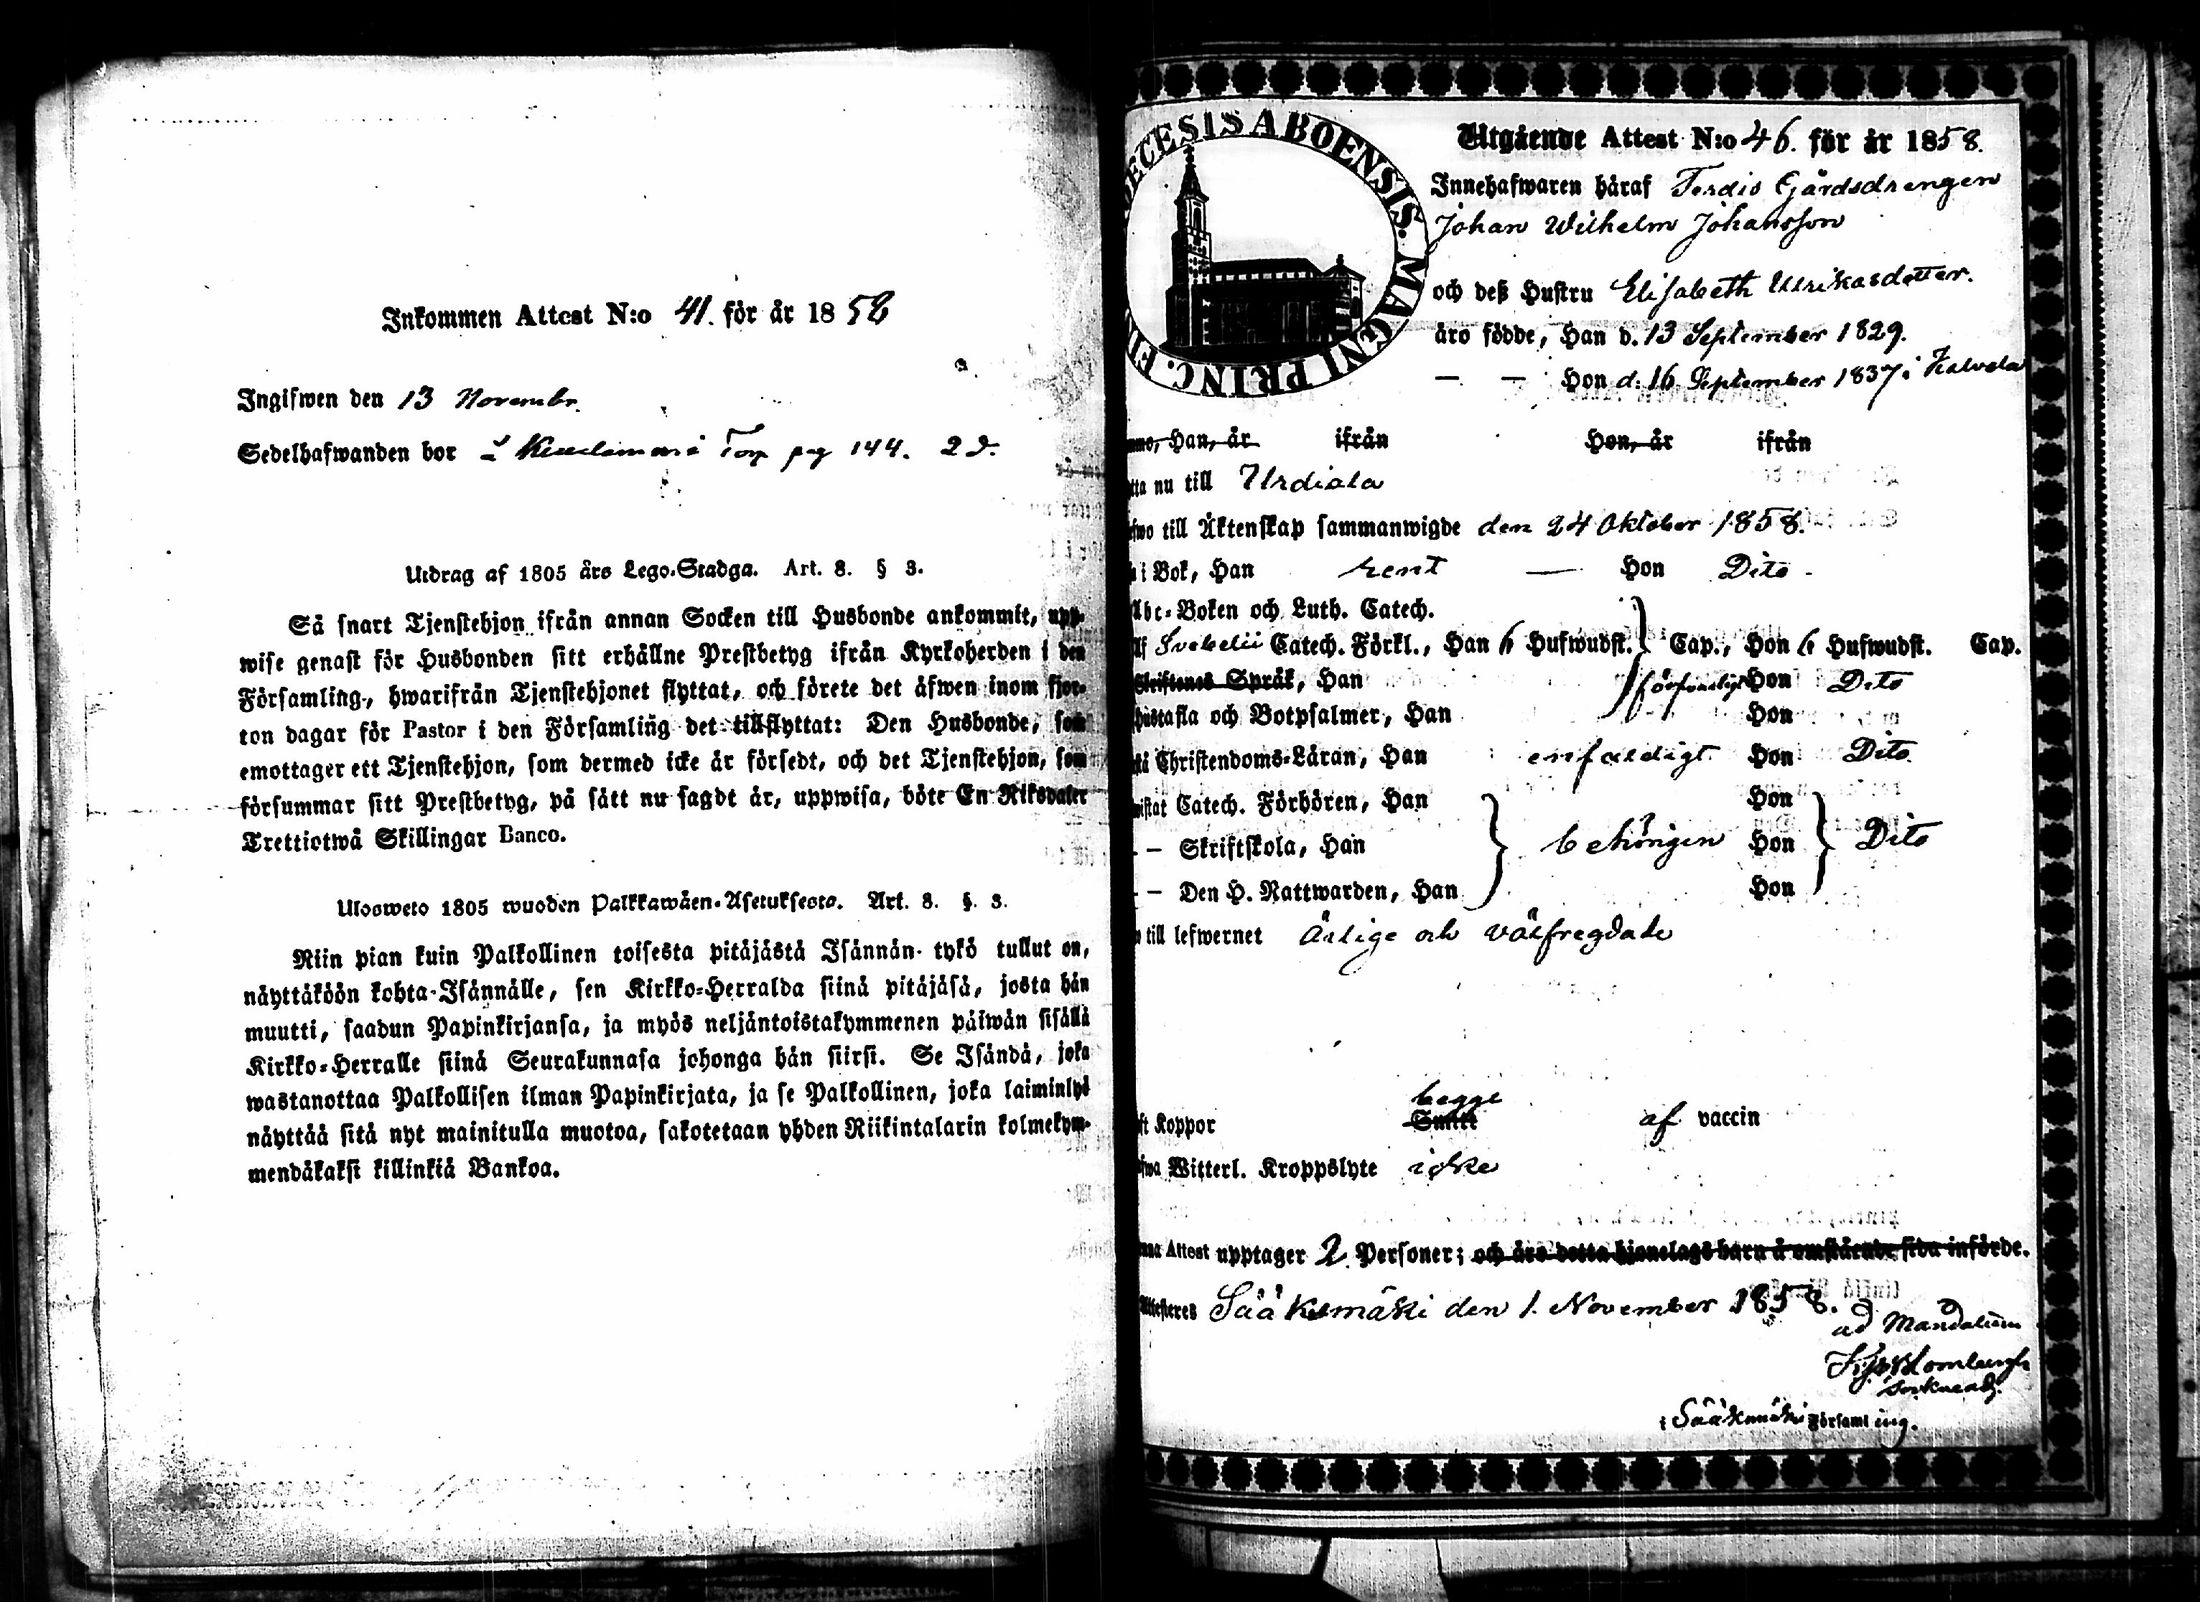 Inkommen Attest N:o 41. för år 1858
Ingifwen den 13 Novembr.
Sedelhafwanden bor Torp pag 144. 2 d.
Utdrag af 1805 års Lego-Stadga. Art. 8. § 3.
Så snart Tjenstehjon ifrån annan Socken till Husbonde ankommit, upp-
wise genast för Husbonden sitt erhållne Prestbetyg ifrån Kyrkoherden i den
Församling, hwarifrån Tjenstehjonet flyttat, och förete det äfwen inom fjor-
ton dagar för Pastor i den Församling det tillflyttat: Den Husbonde, som
emottager ett Tjenstehjon, som dermed icke är försedt, och det Tjenstehjon, som
försummar sitt Prestbetyg, på sätt nu sagdt är, uppwisa, böte En Riksdaler
Trettiotwå Skillingar Banco.
Ulosweto 1805 wuoden Palkkawäen-Asetuksesta. Art. 8. §. 3.
Niin pian kuin Palkollinen toisesta pitäjästä Isännän tykö tullut on,
näyttäköön kohta Isännälle, sen Kirkko-Herralda siinä pitäjäsä, josta hän
muutti, saadun Papinkirjansa, ja myös neljäntoistakymmenen päiwän sisällä
Kirkko-Herralle siinä Seurakunnasa johonga hän siirsi. Se Isändä, joka
wastanottaa Palkollisen ilman Papinkirjata, ja se Palkollinen, joka laiminlyö
näyttää sitä nyt mainitulla muotoa, sakotetaan yhden Riikintalarin kolmekym-
mendäkaksi killinkiä Bankoa.
ECESIS ABOENSIS. MAGNI PRINC. FI
Utgående Attest N:o 46. för år 1858.
Innehafwaren häraf Gårdsdrengen
Johan Wilhelm Johansson
och deß Hustru Elisabeth Ulrikasdotter.
äro födde, Han d. 13 September 1829.
— — Hon d. 16 September 1837 i Kalvola
Han, år ifrån Hon, år ifrån
nu till Urdiala
till Äktenskap sammanwigde den 24 Oktober 1858.
i Bok, Han rent — Hon Dito.
Abc-Boken och Luth. Catech.
Af Svebelii Catech. Förkl., Han 6 Hufwudst. Cap., Hon 6 Hufwudst. Cap.
Skriftenes Språk, Han Hon Dito
Hustafla och Botpsalmer, Han Hon
Christendoms-Läran, Han enfaldigt Hon Dito.
Catech. Förhören, Han Hon
— Skriftskola, Han behörigen Hon Dito
— Den H. Nattwarden, Han Hon
till lefwernet Ärlige och välfregdade
begge
Koppor af vaccin
Witterl. Kroppslyte icke
Attest upptager 2 Personer; och äro detta hjonelags barn å omstående sida införde.
Attesteres Sääksmäki den 1. November 1858.
ad Mandatum
i Sääksmäki Församling.